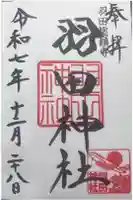 奉拝
羽田神社
令和七年十二月二八日